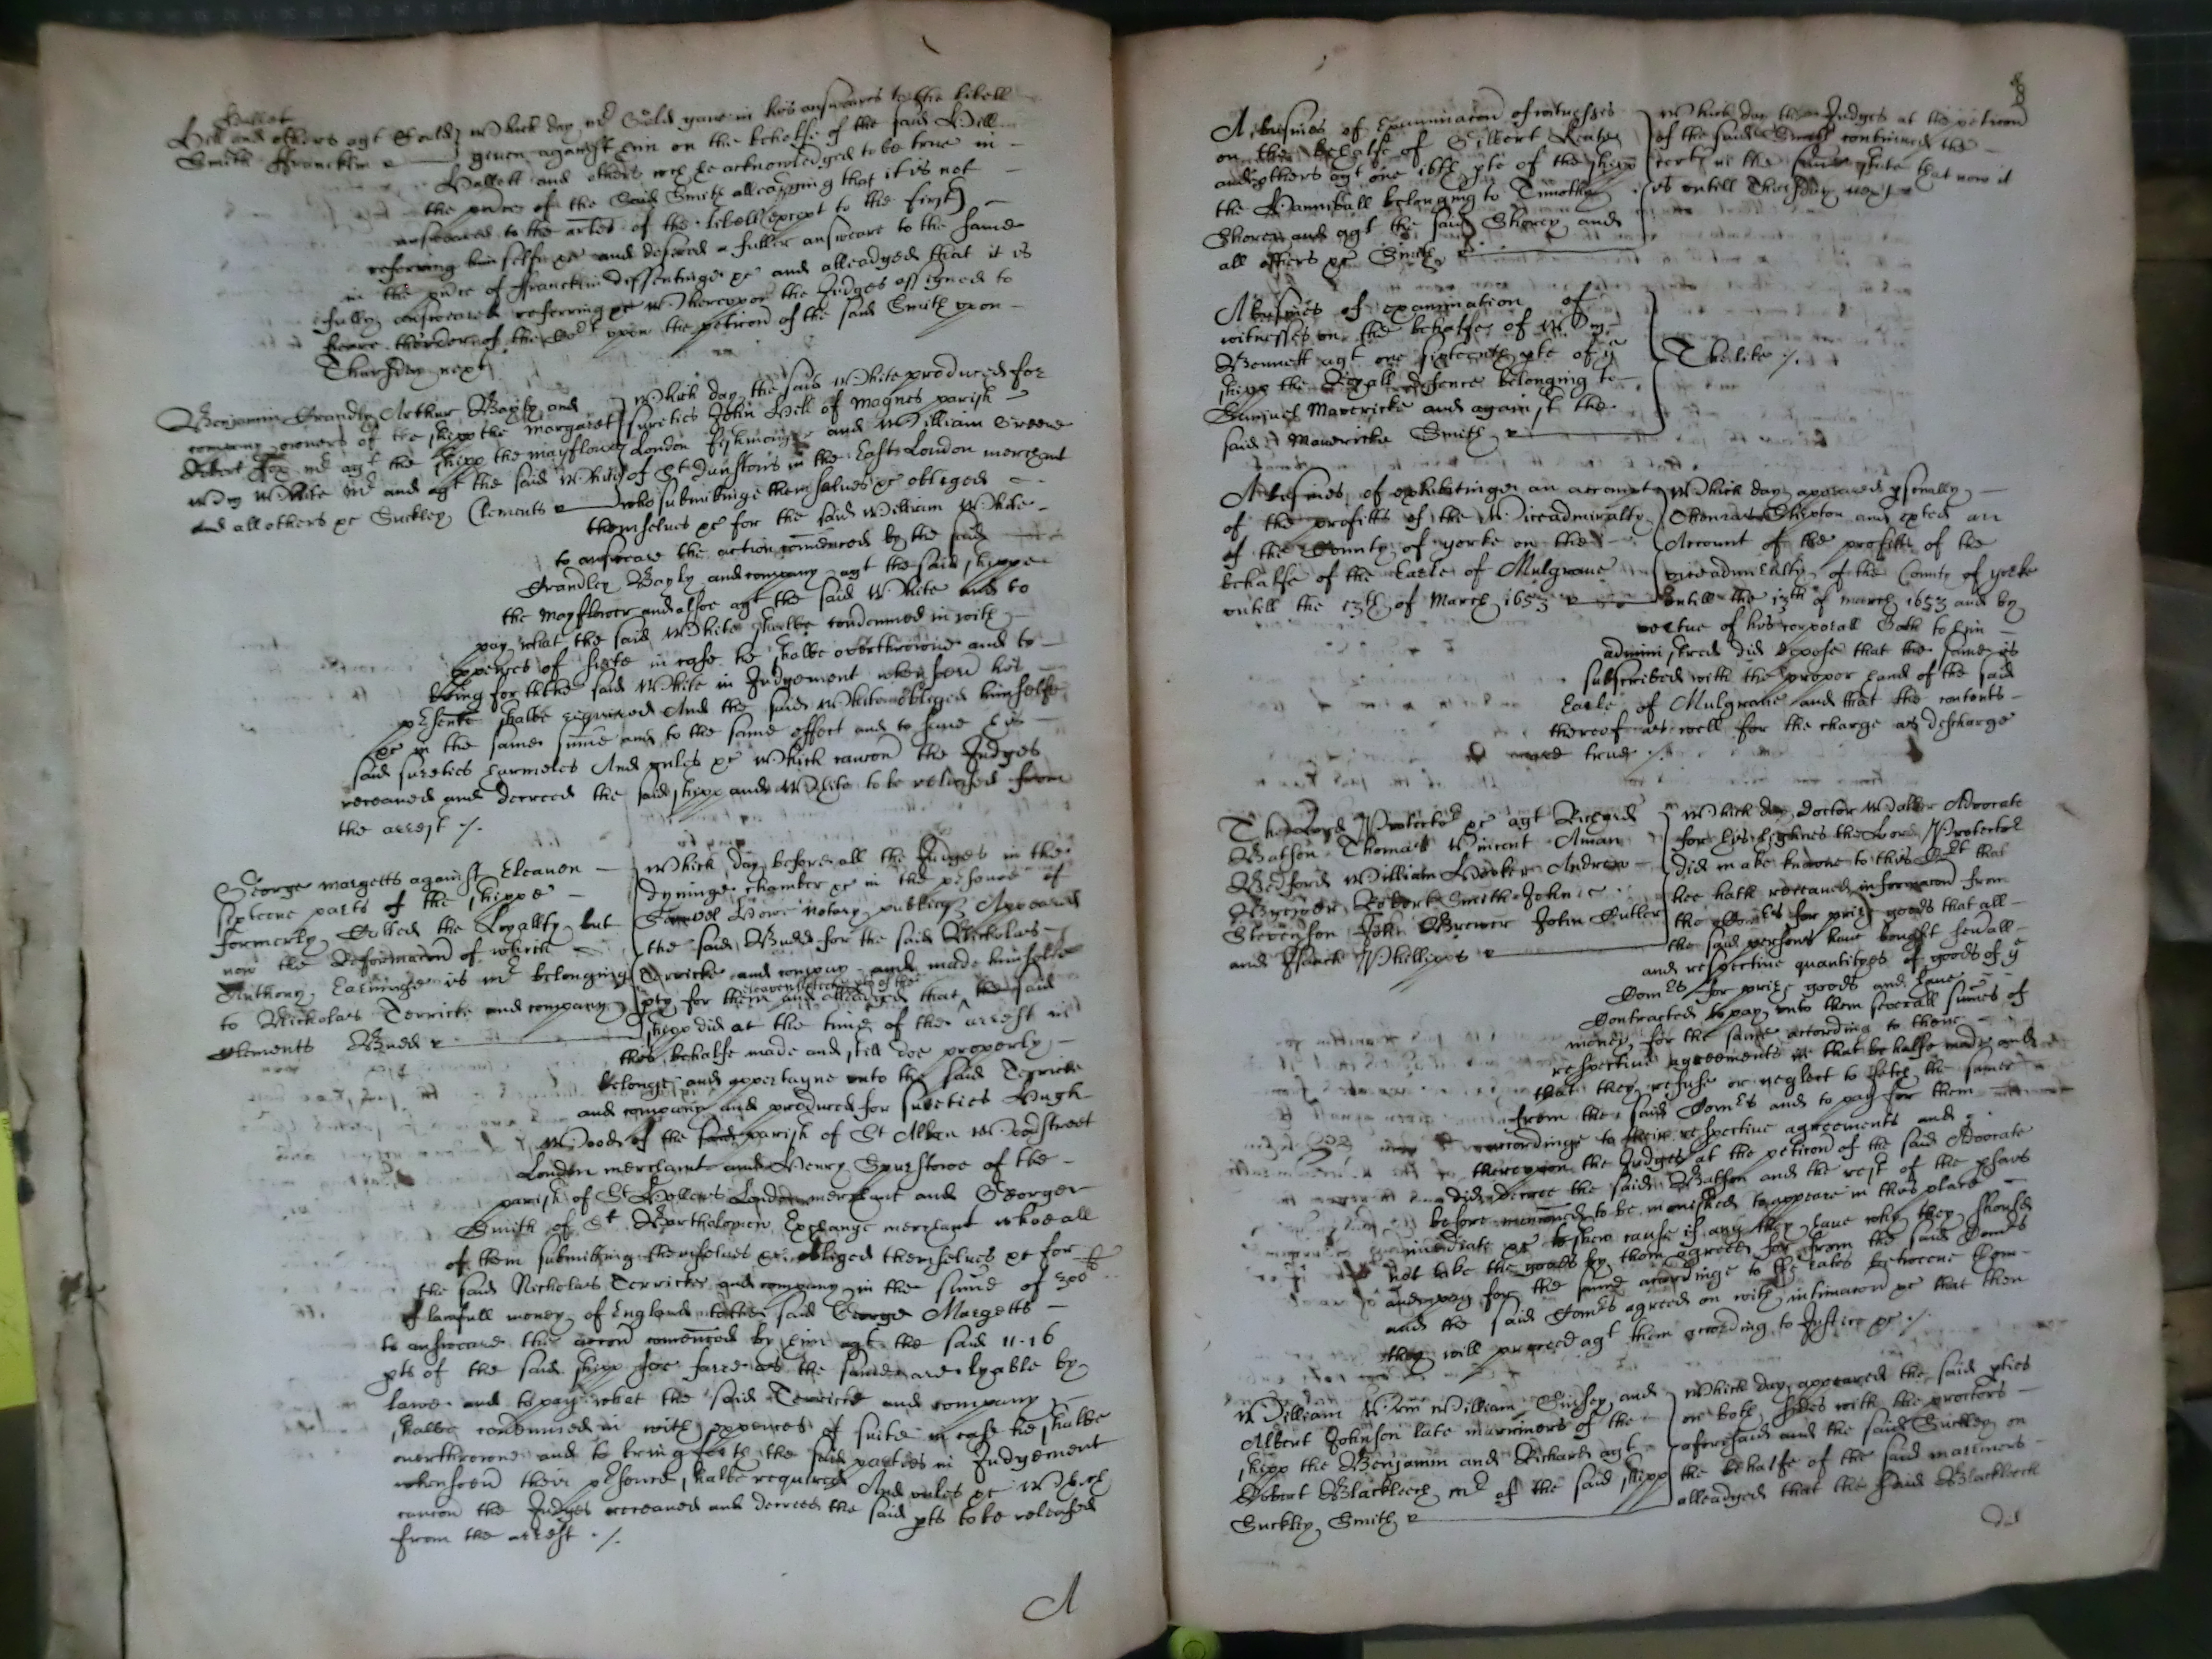 Hallet
Hill and others agt Gould
Smith Francklin
Which day mr Gold gave in his answeares to the libell
given against him on the behalfe of the said Hill
Hallett and others wch he acknowledged to be true in
the pnce of the said Smith alleadging that it is not
answeared to the artles of the libell (except to the first)
referring himselfe &c and desired a fuller answeare to the same
in the pnce of Francklin dissentinge &c and alleadged that it is
fully answeared referring &c Whereupon the Judges assigned to
heare thorder of the Cort upon the peticon of the said Smith upon
Thursday next
Benjamin Crandly Arthur Bayly and
company owners of the shipp the Margaret
Robert Fox mr agt the shipp the Mayflower
Wm White mr and agt the said White
and all others &c Suckley Clements
Which day the said White produced for
sureties John Hill of Magnes parish
London Fishmonger and William Greene
of St Dunstons in the East London merchant
who submittinge themselves &c obliged
themselves &c for the said William White
to answeare the action comenced by the said
Crandley Bayly and company agt the said shippe
the Mayflower and alsoe agt the said White and to
pay what the said White shalbe condemned in with
expences of suite in case he shalbe overthrowne and to
bring forth the said White in Judgement whensoever his
psence shalbe required And the said White obliged himselfe
&c in the same sume and to the same effect and to save his
said sureties harmeles And unles &c Which caucon the Judges
receaved and decreed the said shipp and White to be released from
the arrest ./.
George Margetts against Eleaven
sixteene parts of the shippe
formerly Called the Loyallty but
now the Reformacon of which
Anthony Earninge is mr belonging
to Nicholas Terricke and company
Clements Budd
Which day before all the Judges in the
dyninge chamber &c in the presence of
Samuel Howe notary publicq Appeared
the said Budd for the said Nicholas
Terricke and company and made himselfe
pty for them and alleadged that eleaven sixteenth pts of the said
shipp did at the time of the arrest in
this behalfe made and still doe properly
belonge and appertayne unto the said Terricke
and company and produced for sureties Hugh
Wood of the parish of St Alban Woodstreet
London merchant and Henry Spurstowe of the
parish of St Hellens London merchant and George
Smith of St Bartholomew Exchange merchant whoe all
of them submitting themselves &c obliged themselves &c for
the said Nicholas Terricke and company in the sume of
of lawfull money of England to the said George Margetts
to answeare the accon comenced by him agt the said 11-16
pts of the said shipp soe farre as the same are lyable by
lawe and to pay what the said Terricke and company
shalbe condemned in with expences of suite in case he shalbe
overthrowne and to bring forth the said parties in Judgement
whensoever their psence shalbe required And unles &c Which
caucon the Judges receaved and decreed the said pts to be released
from the arrest ./.
A
8
A busines of Examinacon of witnesses
on the behalfe of Gilbert Keate
and others agt one 16th pte of the shipp
the Hanniball belonging to Timothy
Shorey and agt the said Shorey and
all others &c Smith
Which day the Judges at the peticon
of the said Smith continued the
certte in the same state that now it
is untill Thursday next
A busines of examination of
witnesses on the behalfe of Wm
Bennett agt one sixteenth pte of ye
shipp the Royall defence belonging to
Samuel Mavericke and against the
said Mavericke Smith
The like ./.
A busines of exhibitinge an accompt
of the profitts of the Viceadmiralty
of the County of Yorke on the
behalfe of the Earle of Mulgrave
untill the 13th of March 1653
Which day appeared psonally
Thomas Shipton and exted an
Account of the profitts of the
viceadmiralty of the County of Yorke
untill the 13th of march 1653 and by
vertue of his corporall Oath to him
administred did depose that the same is
subscribed with the proper hand of the said
Earle of Mulgrave and that the contents
thereof as well for the charge as discharge
were true ./.
The Lord Protector &c agt Richard
Batson Thomas Vincent Aman
Bedford William Hooker Andrew
Bucston Robert Smith John
Stevenson John Brewer John Cutler
and Isaack Phillipps
Which day Doctor Walker Advocate
for his highnes the Lord Protector
did make knowne to this Cort that
hee hath receaved informacon from
the Comrs for prize goods that all
the said persons have bought severall
and respective quantityes of goods of ye
Comrs for prize goods and have
Contracted to pay unto them severall sumes of
money for the same according to theire
respective agreements in that behalfe made and
that they refuse or neglect to fetch the same
from the said Comrs and to pay for them
accordinge to their respective agreements and
thereupon the Judges at the peticon of the said Advocate
did decree the said Batson and the rest of the psons
before menconed to be monished to appeare in this place
imediate &c to shew cause if any they have why they should
not take the goods by them agreed for from the said Comrs
and pay for the same accordinge to the rates betweene them
and the said Comrs agreed on with intimacon &c that then
they will proceed agt them according to Justice &c ./.
William Win William Sinsey and
Albert Johnson late marriners of the
shipp the Benjamin and Richard agt
Robert Blackleech mr of the said shipp
Suckley Smith
Which day appeared the said pties
on both sides with the proctors
aforesaid and the said Suckley on
the behalfe of the said mariners
alleadged that the said Blackleech
did